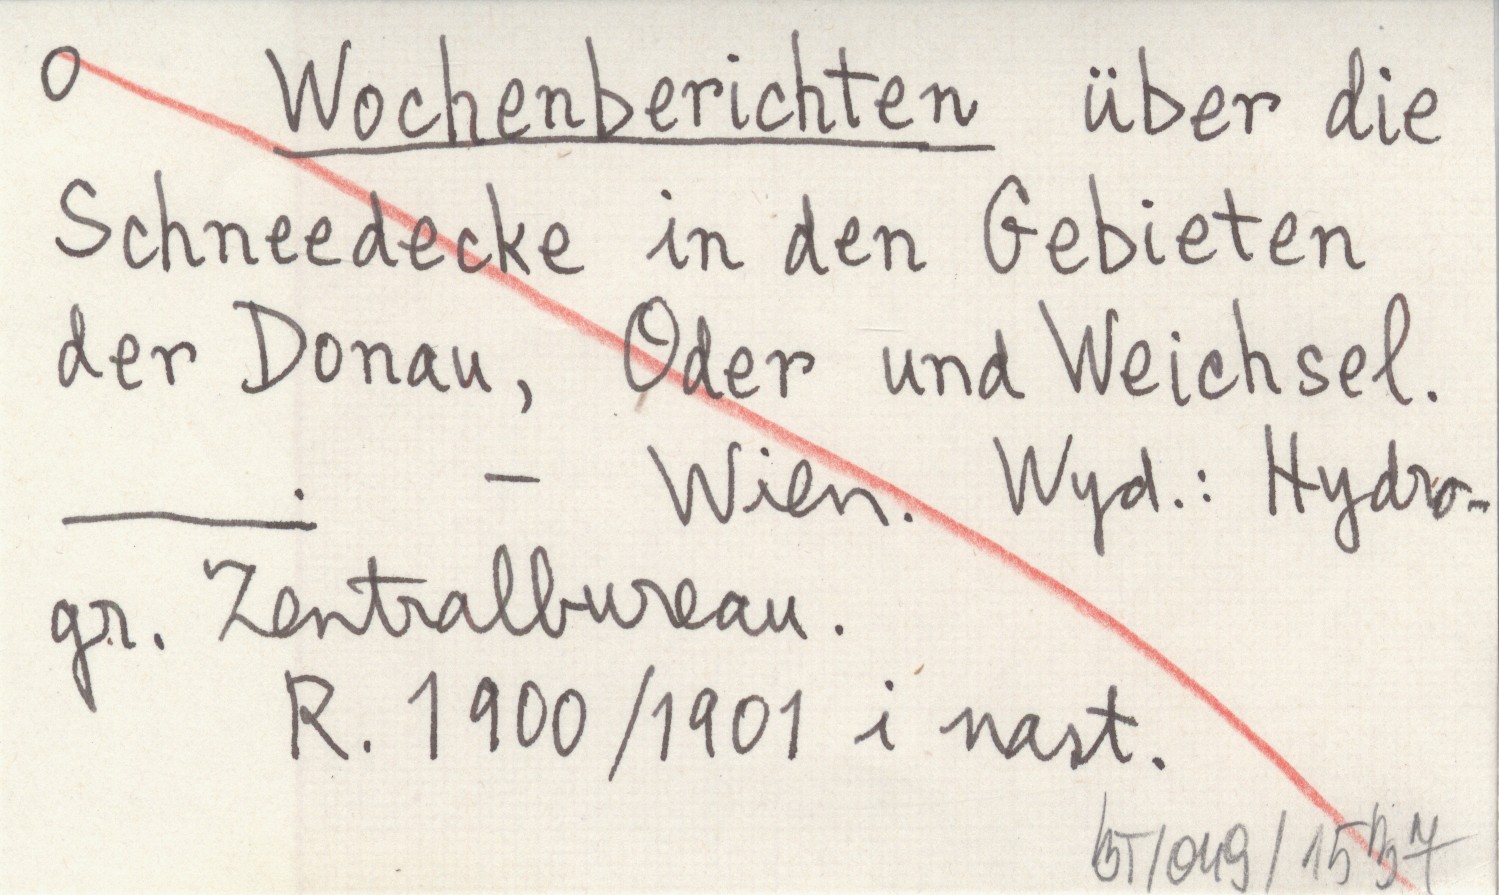 O Wochenberichten über die
Schneedecke in den Gebieten
der Donau, Oder und Weichsel.
______. – Wien. Wyd.: Hydro-
gr. Zentralbureau.
R. 1900/1901 i nast.